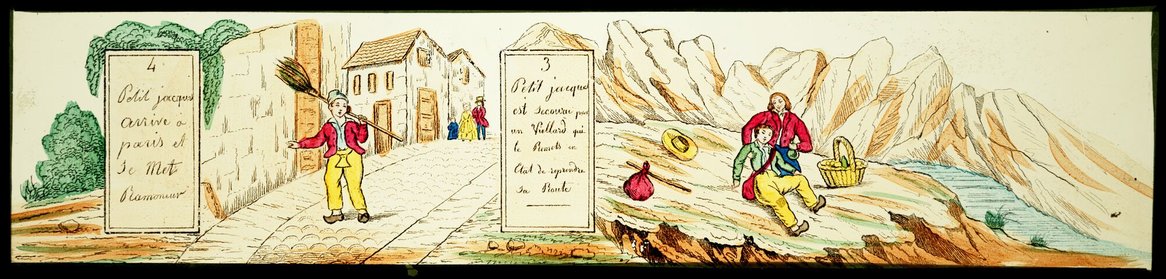 4
Petit jacques
arrive à
paris et
Se Met
Ramoneur
3
Petit jacques
est Secourue par
un Viellard qui
le Remets en
Etat de reprendre
Sa Route